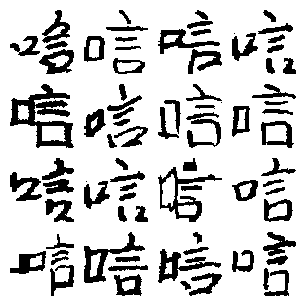 唁唁唁唁
唁唁唁唁
唁唁唁唁
唁唁唁唁